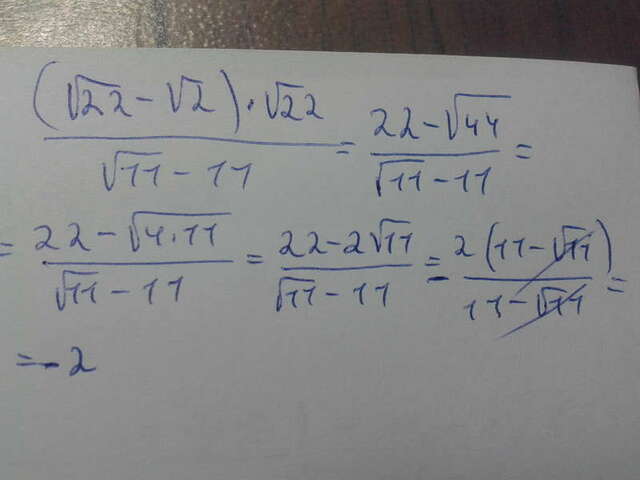 ((√22 - √2) · √22)/(√11 - 11) = (22 - √44)/(√11 - 11) =
= (22 - √4·11)/(√11 - 11) = (22 - 2√11)/(√11 - 11) = - (2(11 - √11))/(11 - √11) =
= -2